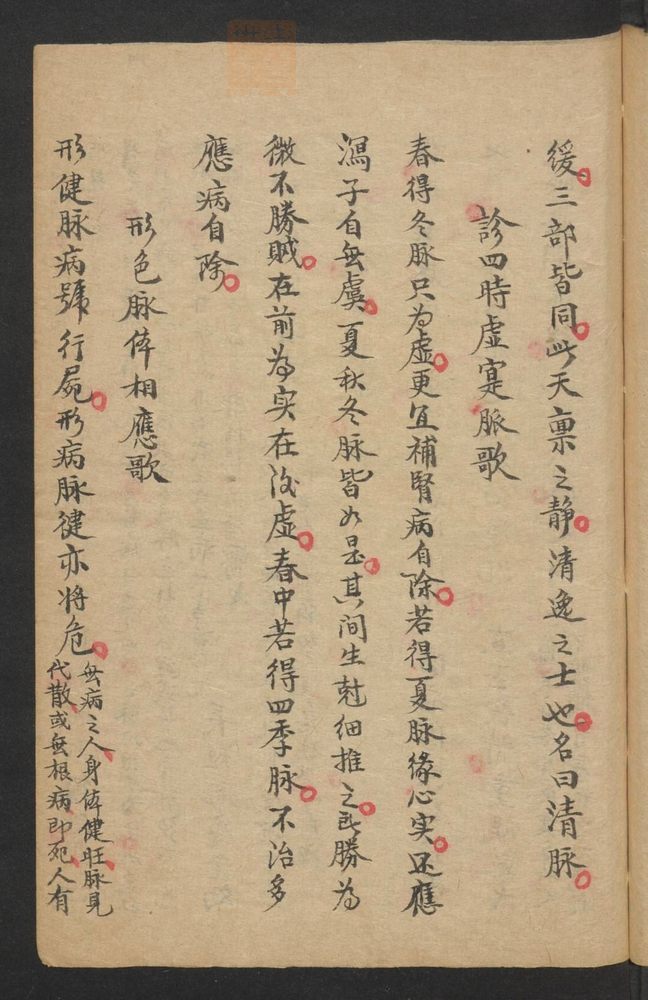 緩三部皆同此天禀之静清逸之士也名曰清脉
診四時虚寔脈歌
春得冬脉只为虚更宜補腎病自除若得夏脉缘心实还應
瀉子自無虞夏秋冬脉皆如是其间生尅细推之我勝为
微不勝賊在前为实在後虚春中若得四季脉不治多
應病自除
形色脉体相應歌
形健脉病號行屍形病脉健亦将危
無病之人身体健旺脉見
代散或無根病即死人有